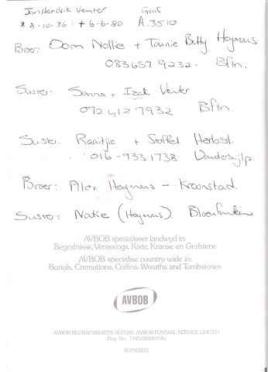 Venter Graf
* 8-10-36 + 6-6-80 A.3510
Broer: Oom Nollie + Tannie Betty Heymans
083 657 9232. Bfn.
Suster: Sanna + Izak Venter
072 412 7932 Bfn.
Suster: Raaitjie + Stoffel Herbst.
016-933 1738 Vanderbijlp.
Broer: Alex Heymans - Kroonstad.
Suster: Nakie (Heymans) Bloemfontein
AVBOB spesialiseer landwyd in
Begrafnisse, Verassings, Kiste, Kranse en Grafstene
AVBOB specialise country wide in
Burials, Cremations, Coffins, Wreaths and Tombstones
AVBOB